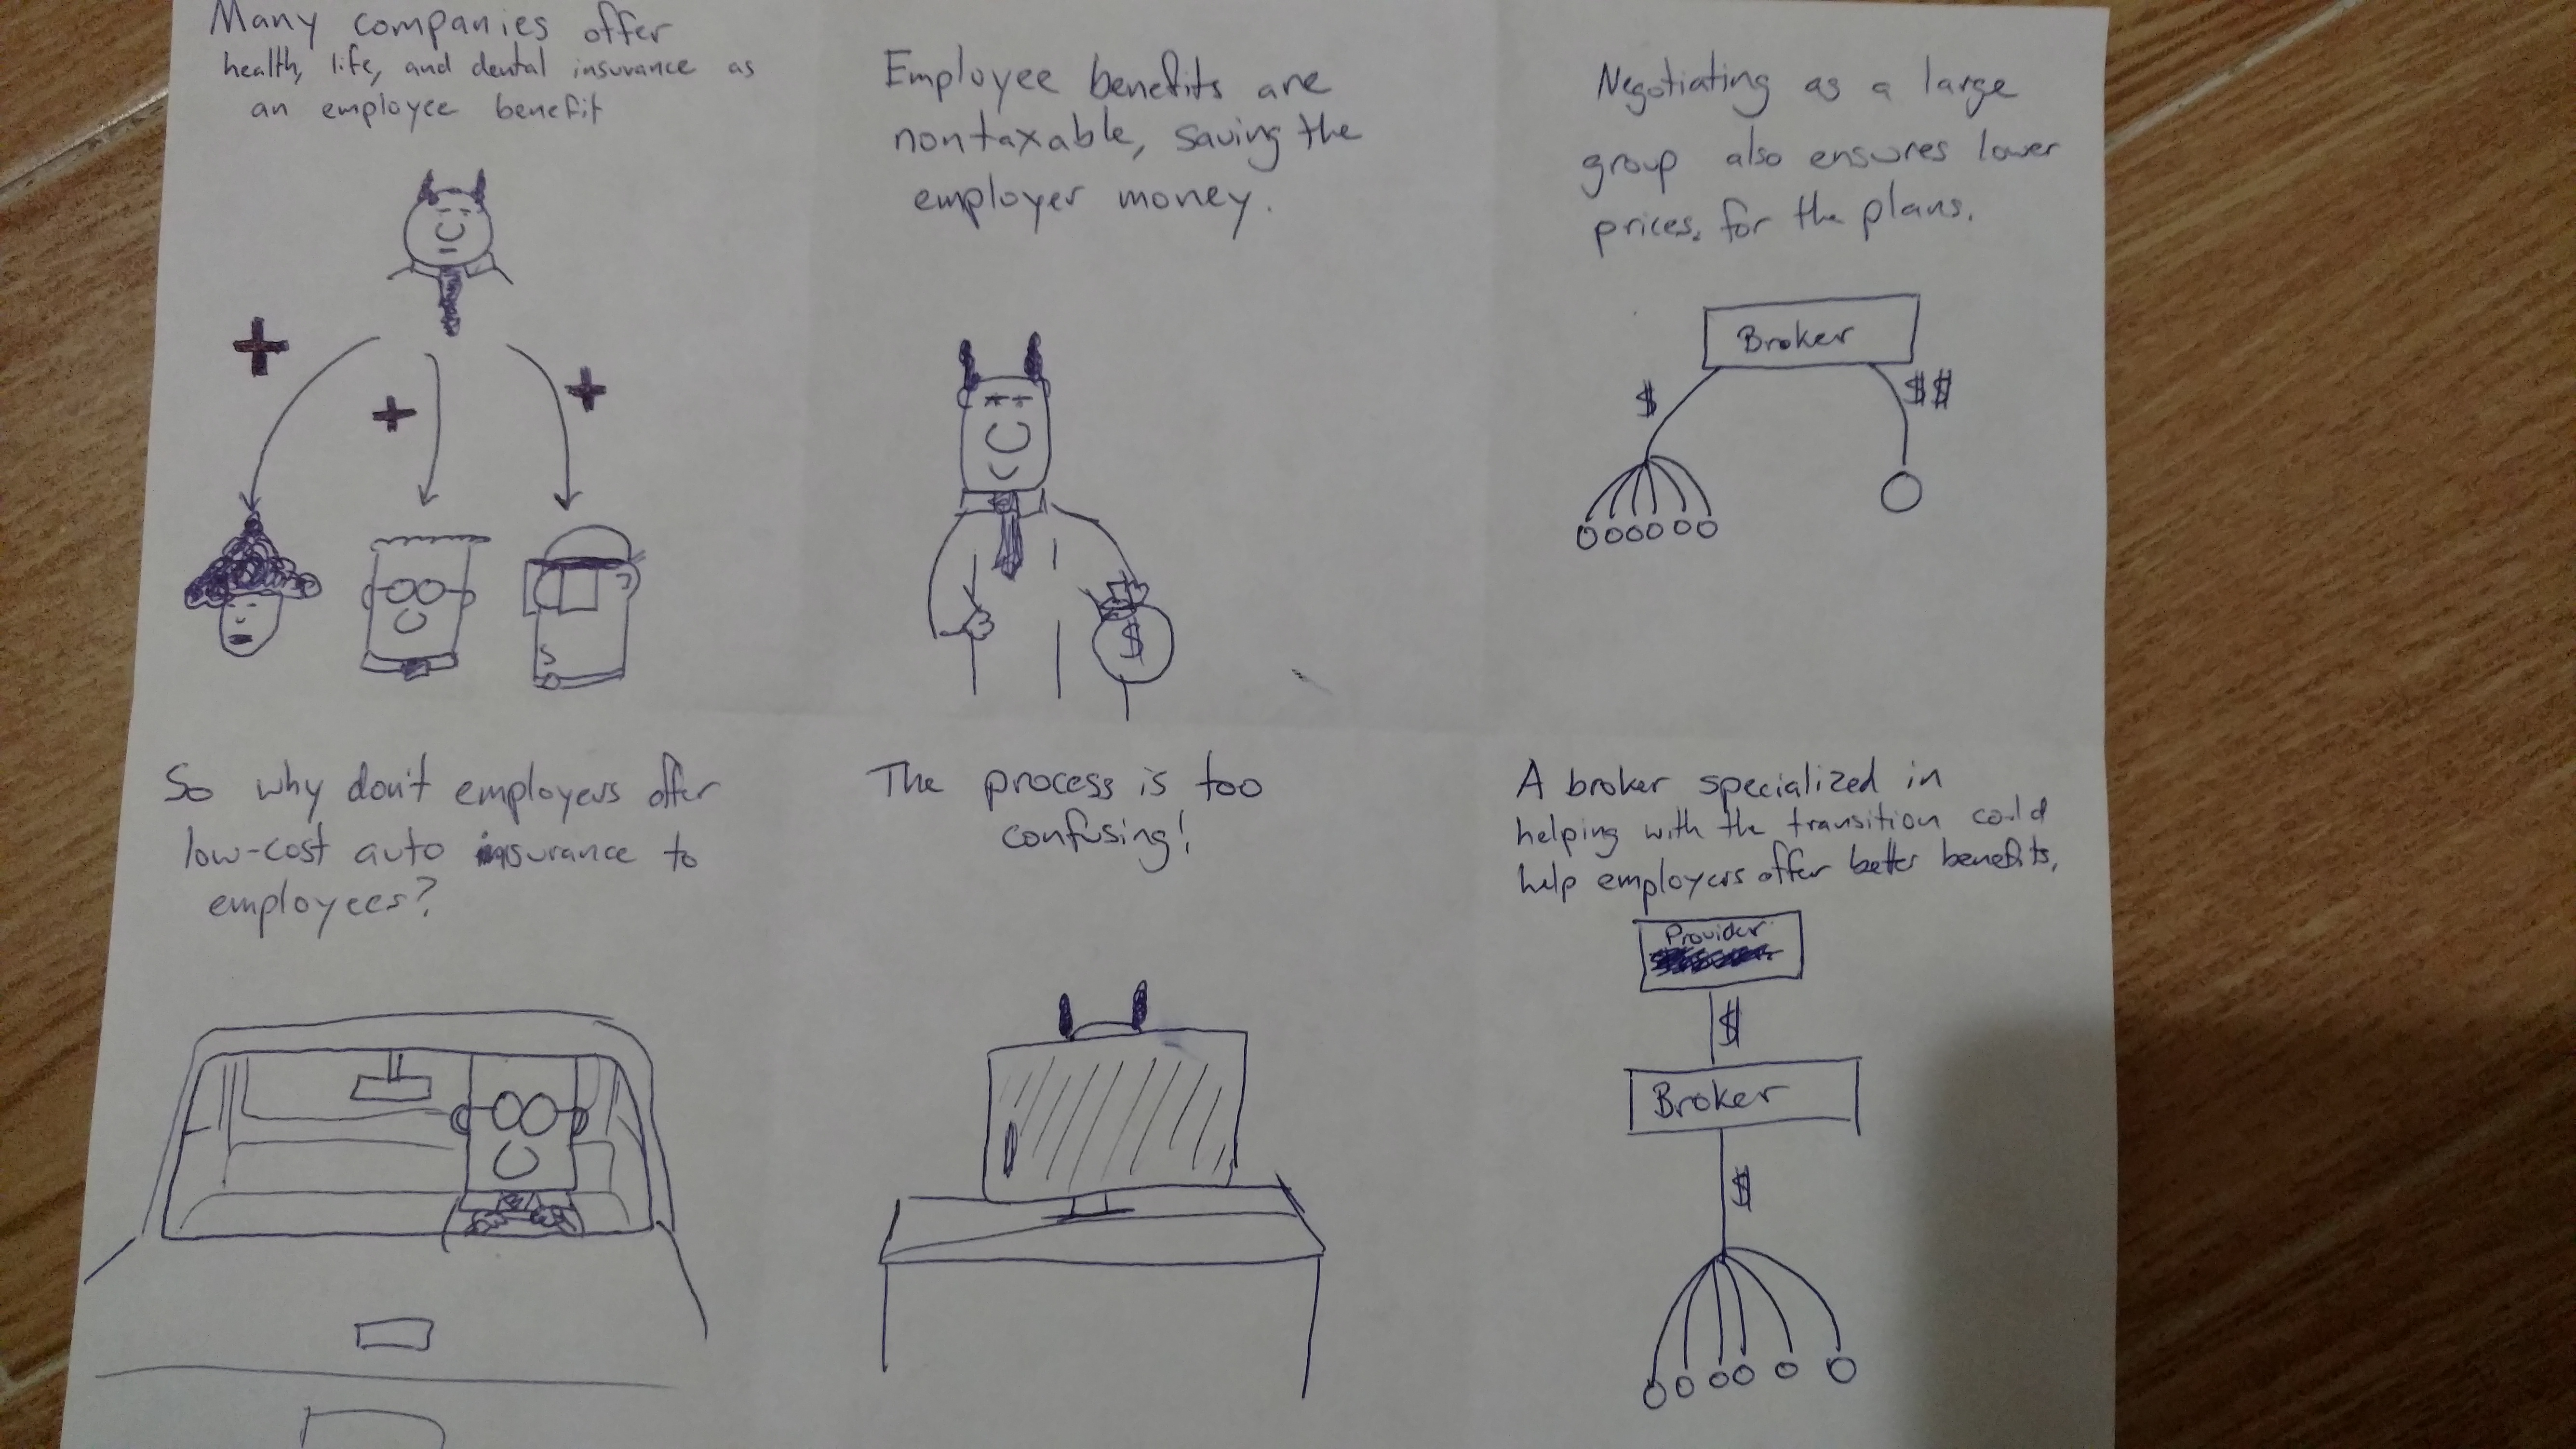 Many companies offer
health, life, and dental insurance as
an employee benefit
Employee benefits are
nontaxable, saving the
employer money.
$
Negotiating as a large
group also ensures lower
prices. for the plans.
Broker
$
$$
So why don't employers offer
low-cost auto insurance to
employees?
The process is too
confusing!
A broker specialized in
helping with the transition could
help employers offer better benefits.
Provider
$
Broker
$